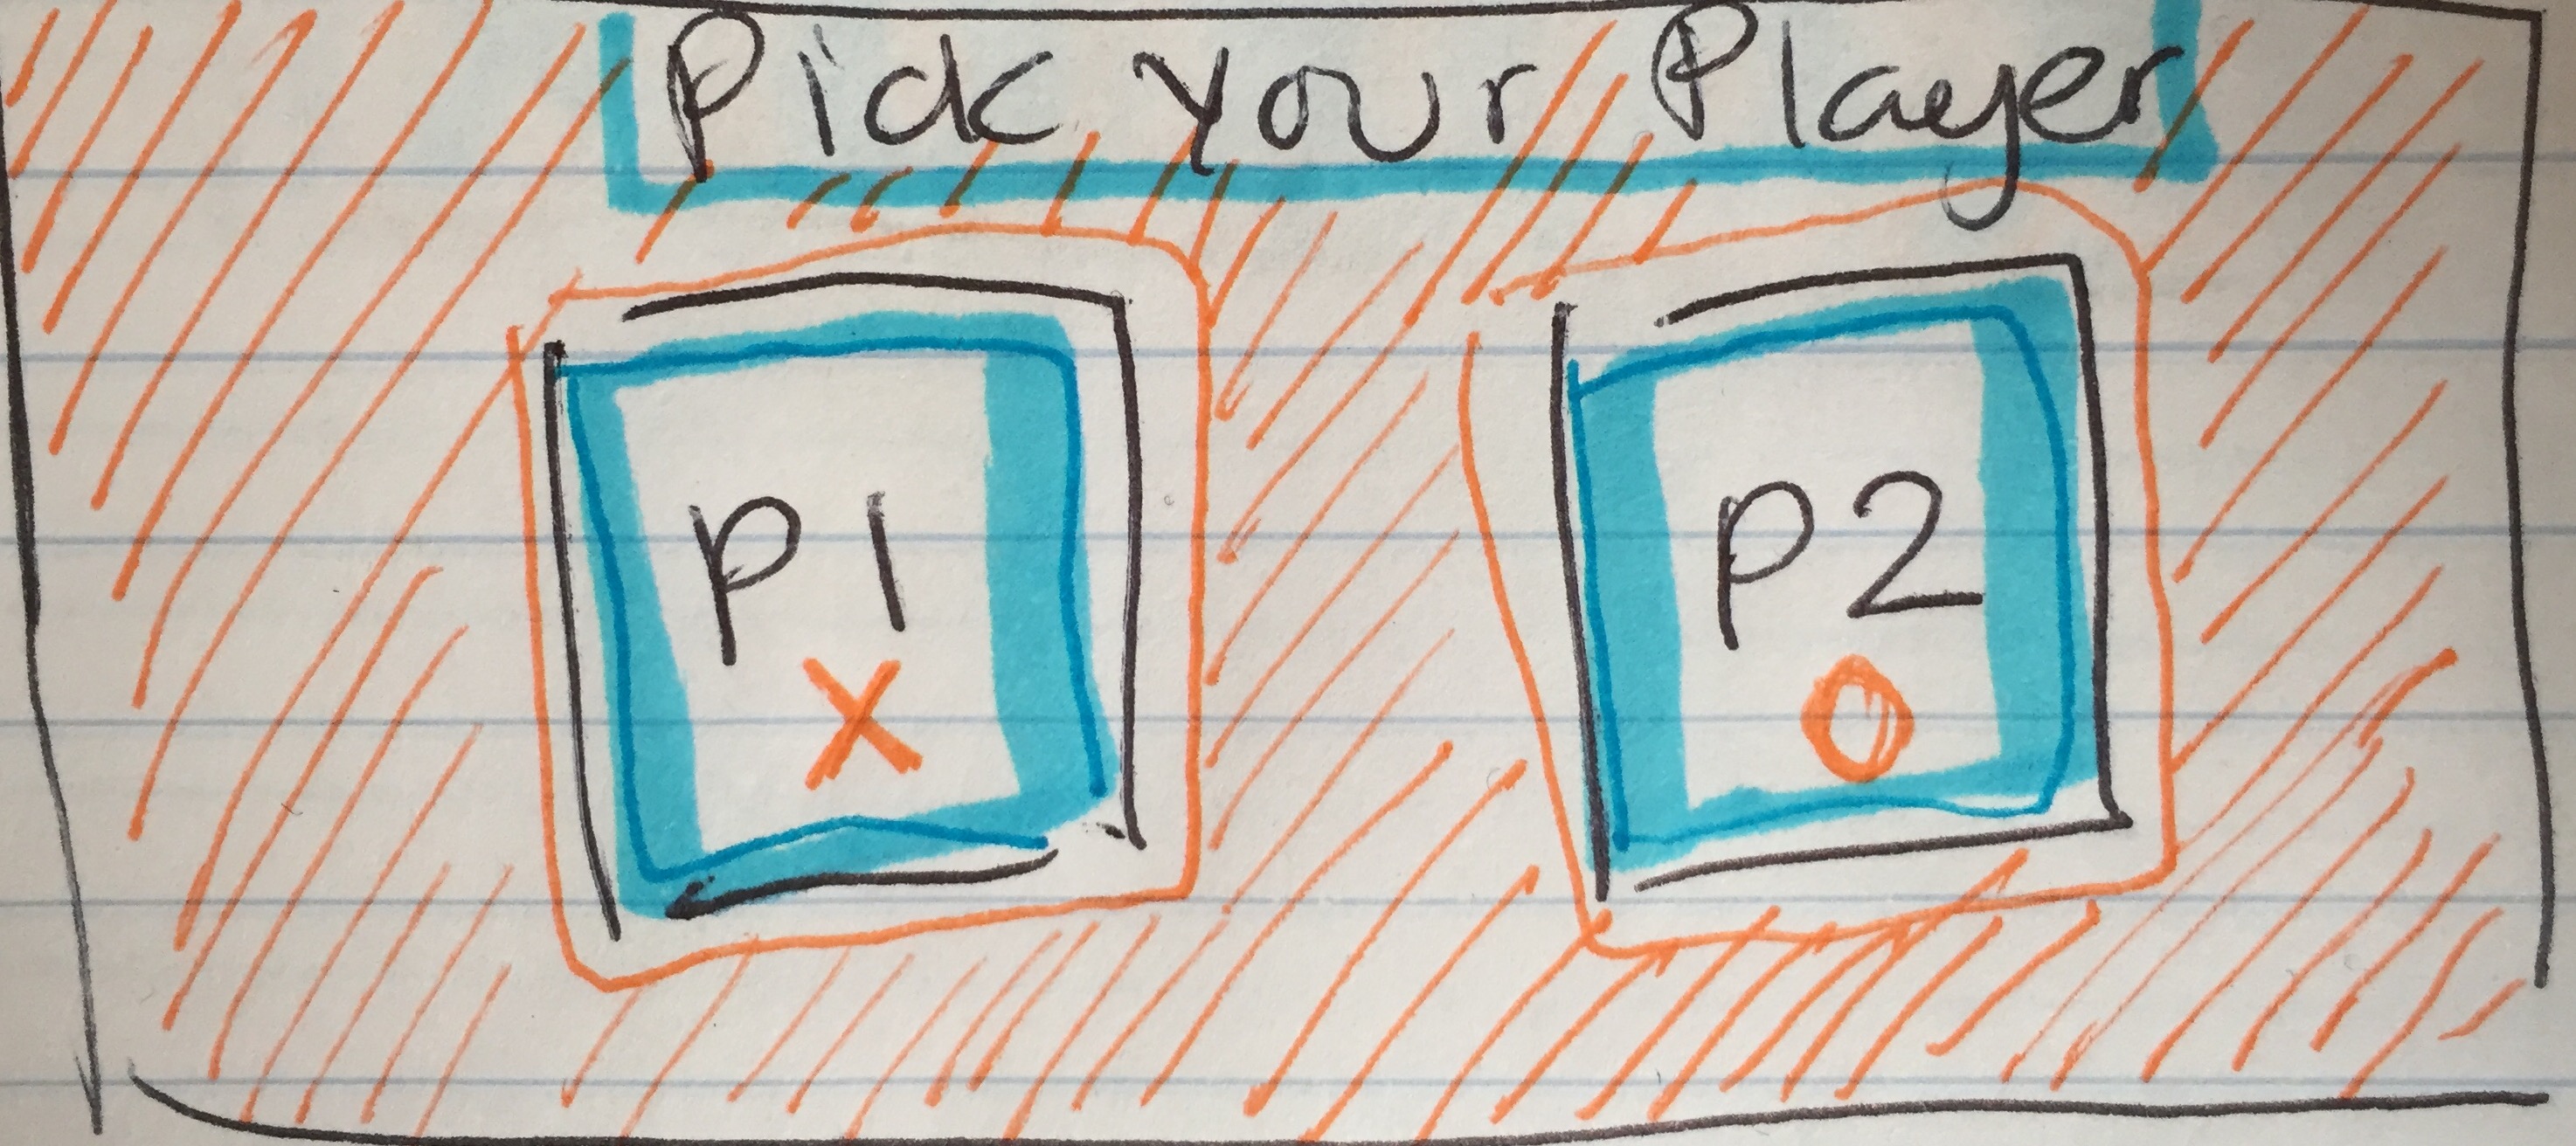 Pick your Player
P1
X
P2
O